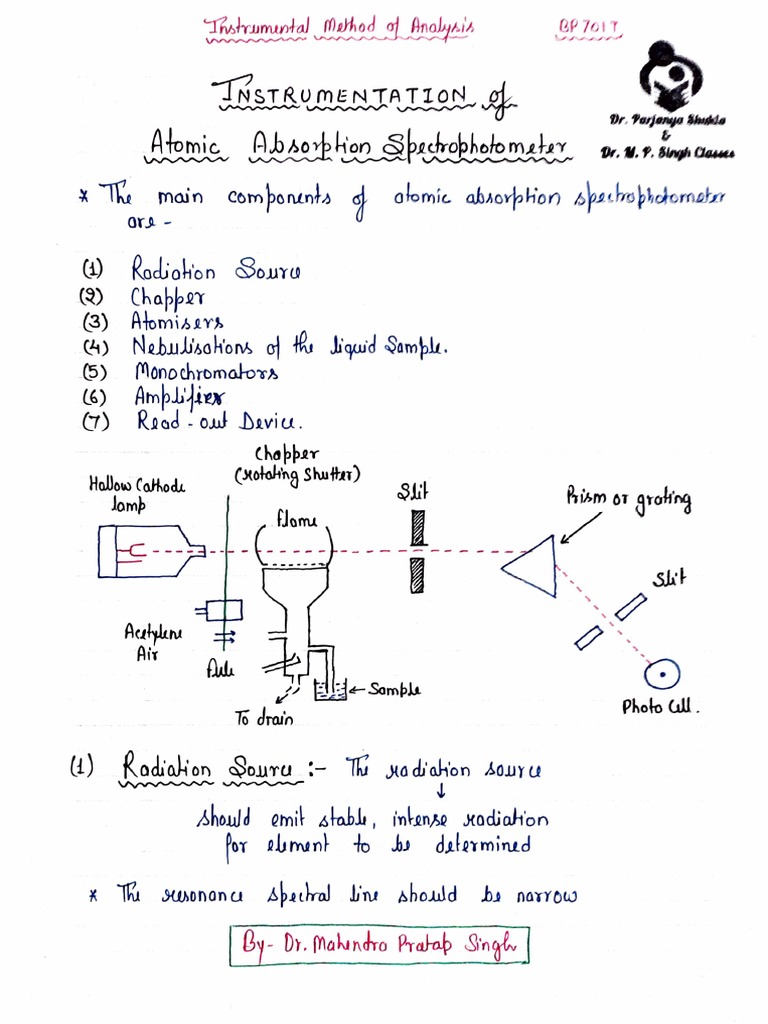 Instrumental Method of Analysis BP701T
INSTRUMENTATION of
Atomic Absorption Spectrophotometer
Dr. Parjanya Shukla
&
Dr. M. P. Singh Classes
* The main components of atomic absorption spectrophotometer
are -
(1) Radiation Source
(2) Chapper
(3) Atomisers
(4) Nebulisations of the liquid Sample.
(5) Monochromators
(6) Amplifier
(7) Read-out Device.
Chopper
(rotating shutter)
Hallow Cathode
lamp
flame
Slit
Prism or grating
Slit
Acetylene
Air
Sample
To drain
Photo Cell.
(1) Radiation Source :- The radiation source
↓
should emit stable, intense radiation
for element to be determined
* The resonance spectral line should be narrow
By- Dr. Mahendra Pratap Singh